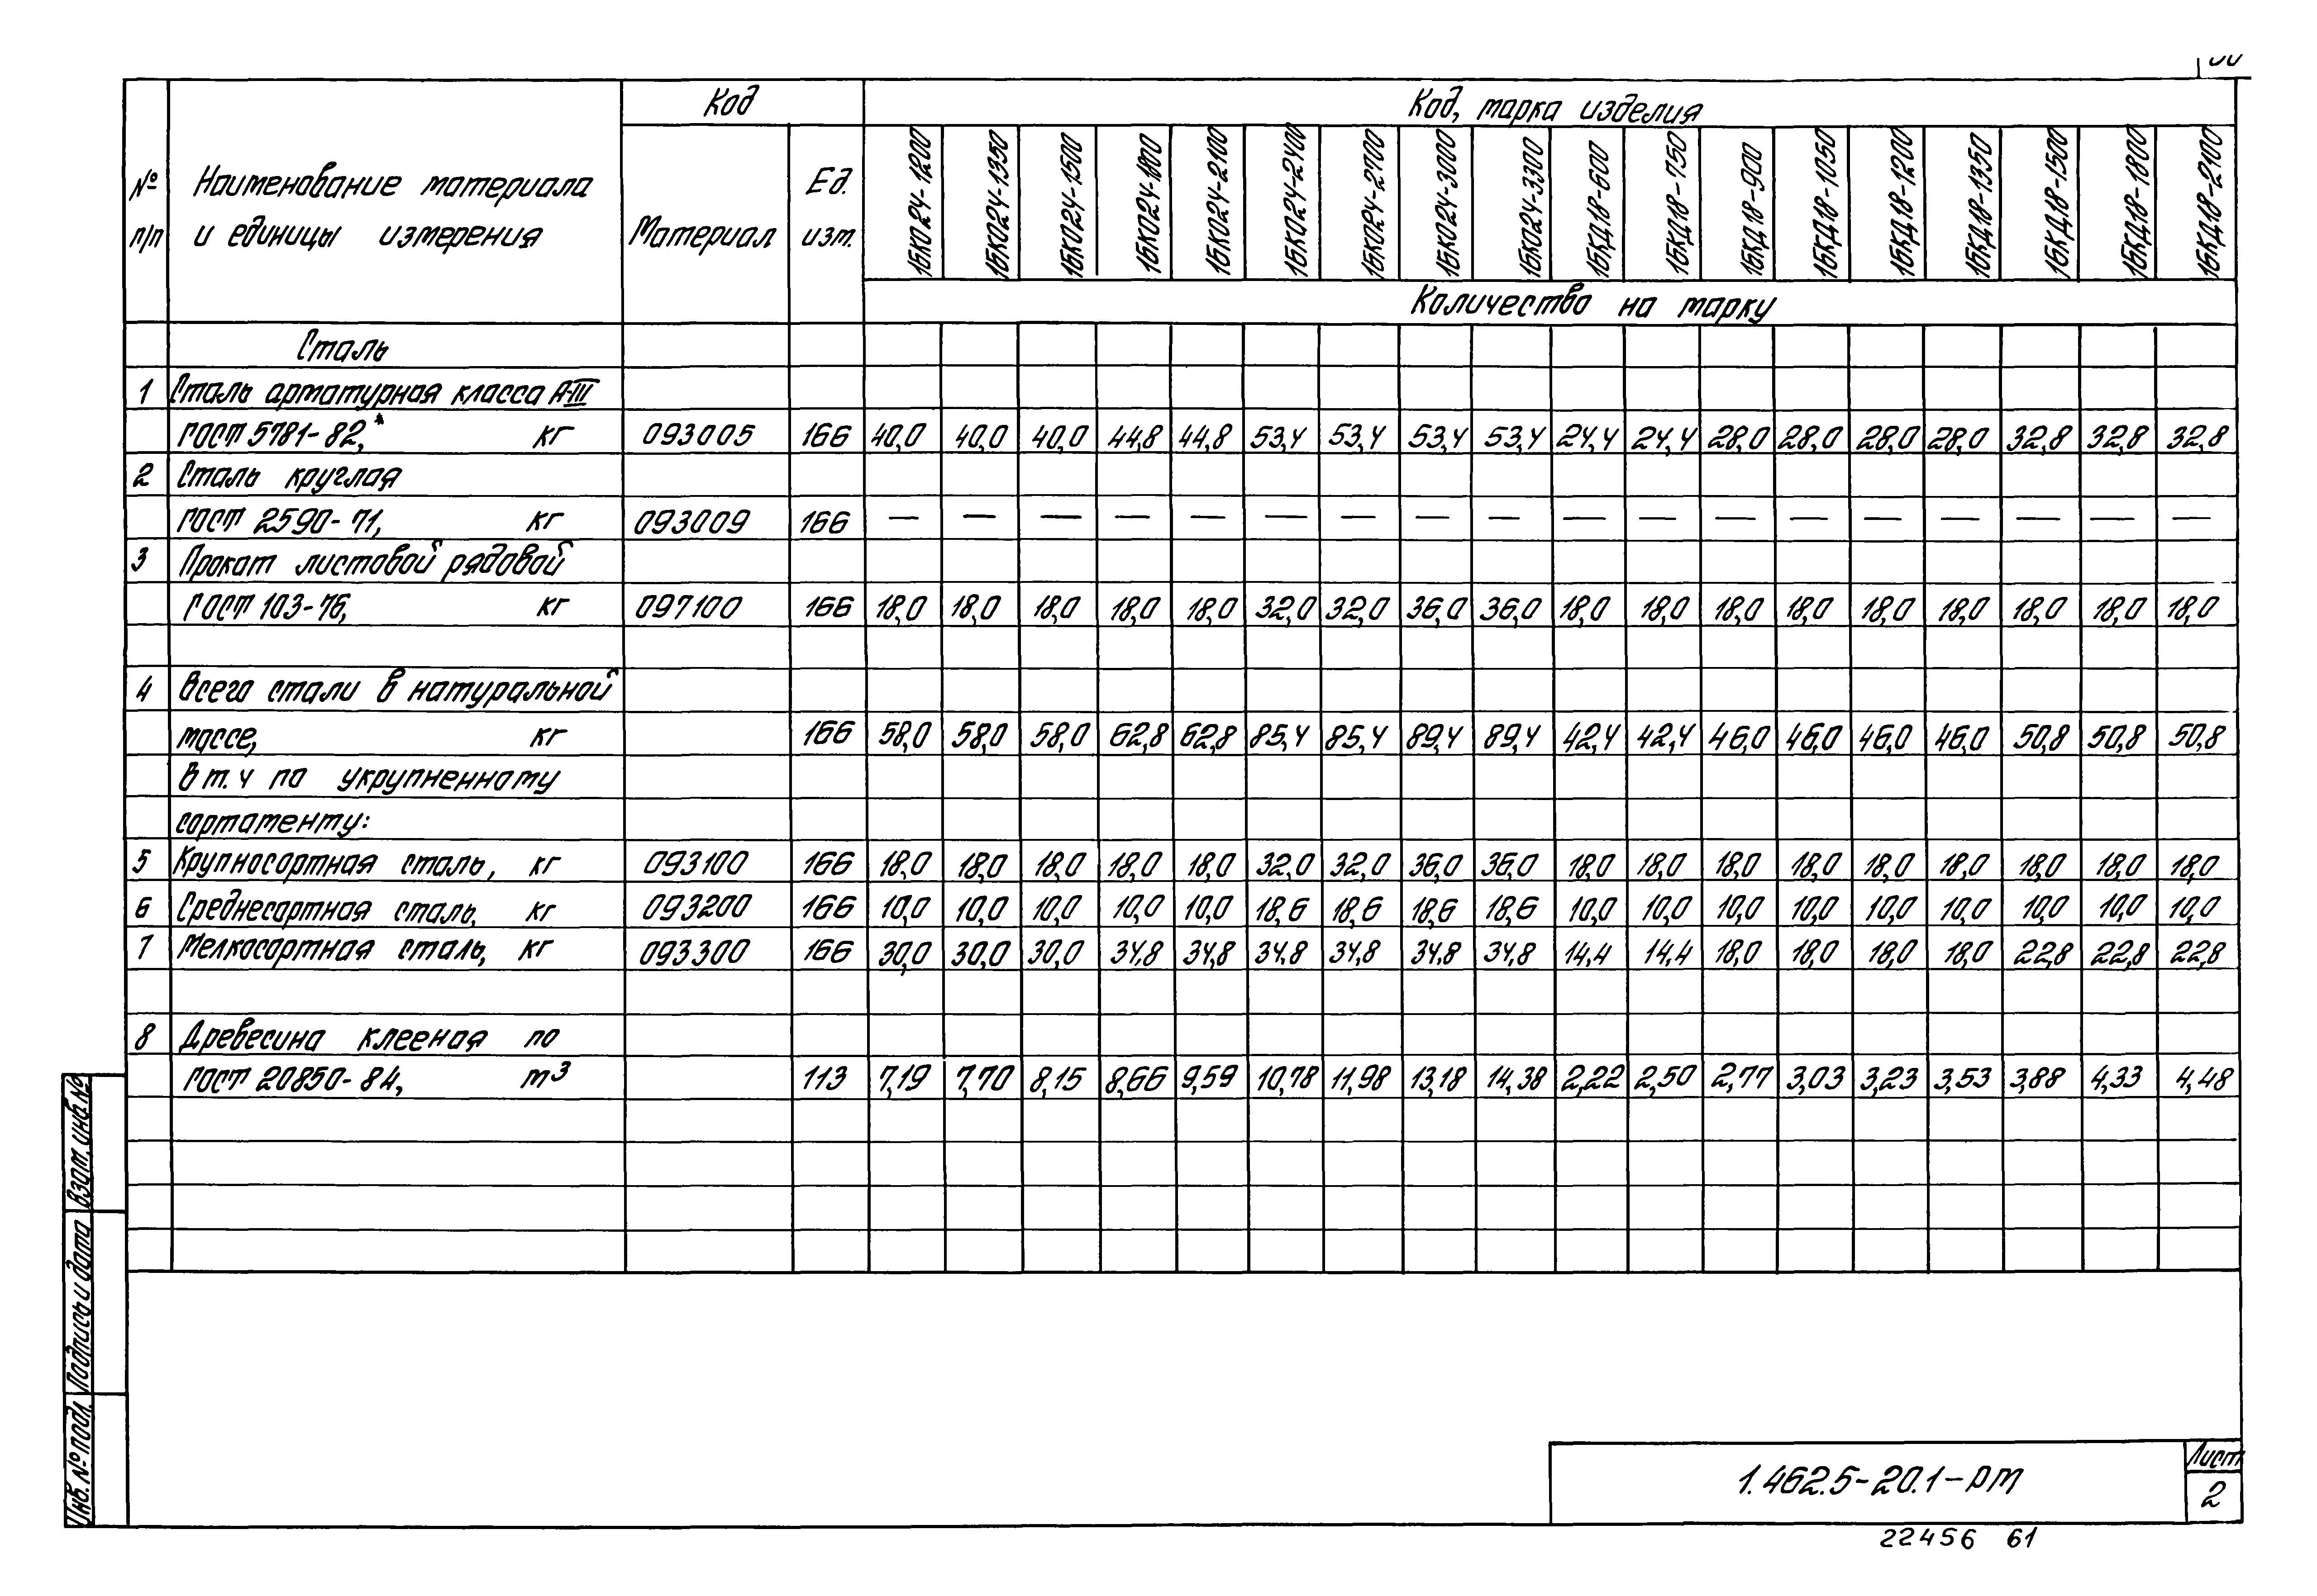 Код
Код, марка изделия
№ п/п
Наименование материала и единицы измерения
Материал
Ед. изм.
1БКО24-1200 1БКО24-1350 1БКО24-1500 1БКО24-1800 1БКО24-2100 1БКО24-2400 1БКО24-2700 1БКО24-3000 1БКО24-3300 1БКД18-600 1БКД18-750 1БКД18-900 1БКД18-1050 1БКД18-1200 1БКД18-1350 1БКД18-1500 1БКД18-1800 1БКД18-2100
Количество на марку
Сталь
1 Сталь арматурная класса А-III
ГОСТ 5781-82,* кг 093005 166 40,0 40,0 40,0 44,8 44,8 53,4 53,4 53,4 53,4 24,4 24,4 28,0 28,0 28,0 28,0 32,8 32,8 32,8
2 Сталь круглая
ГОСТ 2590-71, кг 093009 166 — — — — — — — — — — — — — — — — — —
3 Прокат листовой рядовой
ГОСТ 103-76, кг 097100 166 18,0 18,0 18,0 18,0 18,0 32,0 32,0 36,0 36,0 18,0 18,0 18,0 18,0 18,0 18,0 18,0 18,0 18,0
4 Всего стали в натуральной
массе, кг 166 58,0 58,0 58,0 62,8 62,8 85,4 85,4 89,4 89,4 42,4 42,4 46,0 46,0 46,0 46,0 50,8 50,8 50,8
в т.ч по укрупненному
сортаменту:
5 Крупносортная сталь, кг 093100 166 18,0 18,0 18,0 18,0 18,0 32,0 32,0 36,0 36,0 18,0 18,0 18,0 18,0 18,0 18,0 18,0 18,0 18,0
6 Среднесортная сталь, кг 093200 166 10,0 10,0 10,0 10,0 10,0 18,6 18,6 18,6 18,6 10,0 10,0 10,0 10,0 10,0 10,0 10,0 10,0 10,0
7 Мелкосортная сталь, кг 093300 166 30,0 30,0 30,0 34,8 34,8 34,8 34,8 34,8 34,8 14,4 14,4 18,0 18,0 18,0 18,0 22,8 22,8 22,8
8 Древесина клееная по
ГОСТ 20850-84, м³ 113 7,19 7,70 8,15 8,66 9,59 10,78 11,98 13,18 14,38 2,22 2,50 2,77 3,03 3,23 3,53 3,88 4,33 4,48
Взам. инв. №
Подпись и дата
Инв. № подл.
1.462.5-20.1-РМ
Лист
2
22456 61